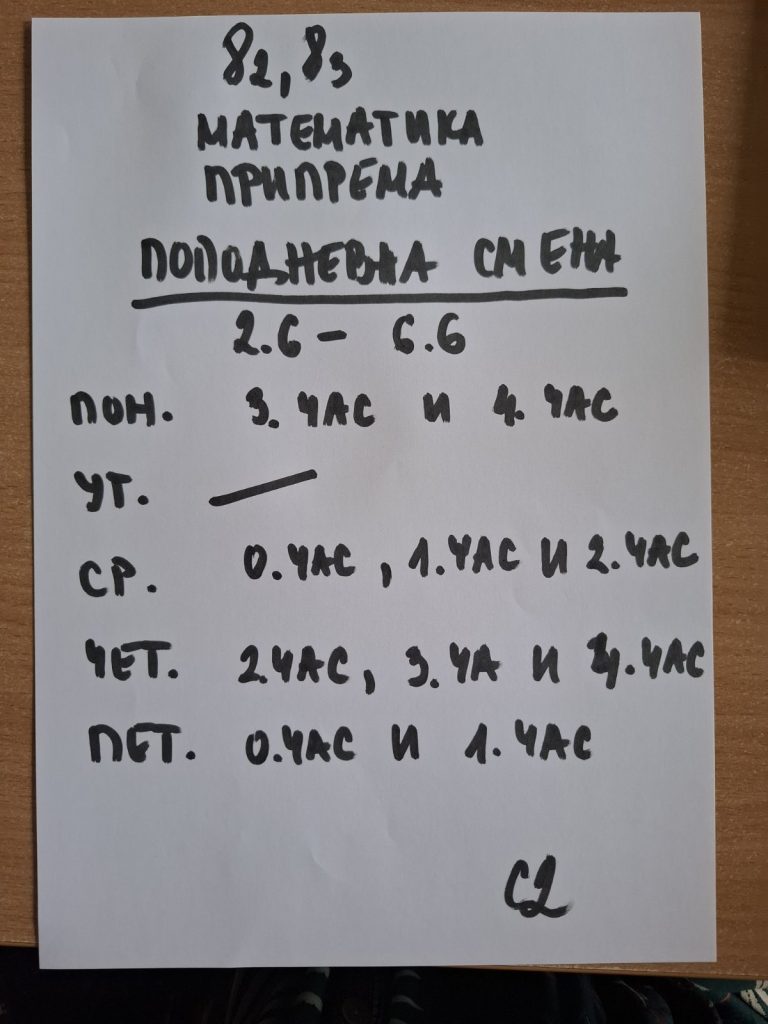 82, 83
МАТЕМАТИКА
ПРИПРЕМА
ПОПОДНЕВНА СМЕНА
2.6 - 6.6
ПОН. 3. ЧАС И 4. ЧАС
УТ. —
СР. 0.ЧАС, 1.ЧАС И 2.ЧАС
ЧЕТ. 2.ЧАС, 3.ЧА И 4.ЧАС
ПЕТ. 0.ЧАС И 1.ЧАС
С2